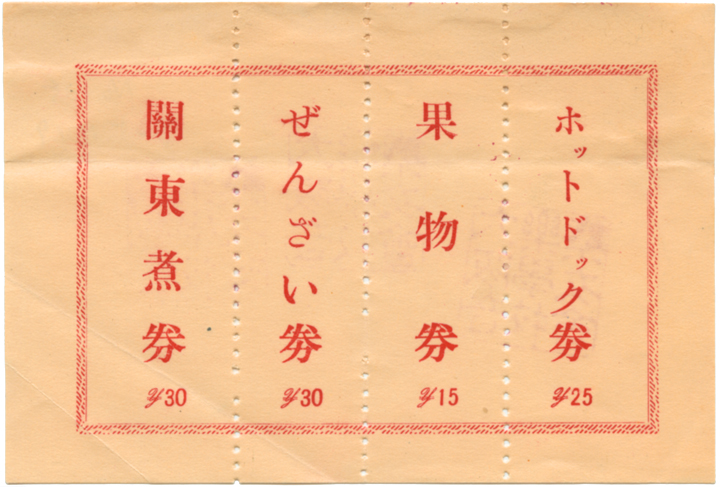 ホットドック券
¥25
果物券
¥15
ぜんざい券
¥30
關東煮券
¥30